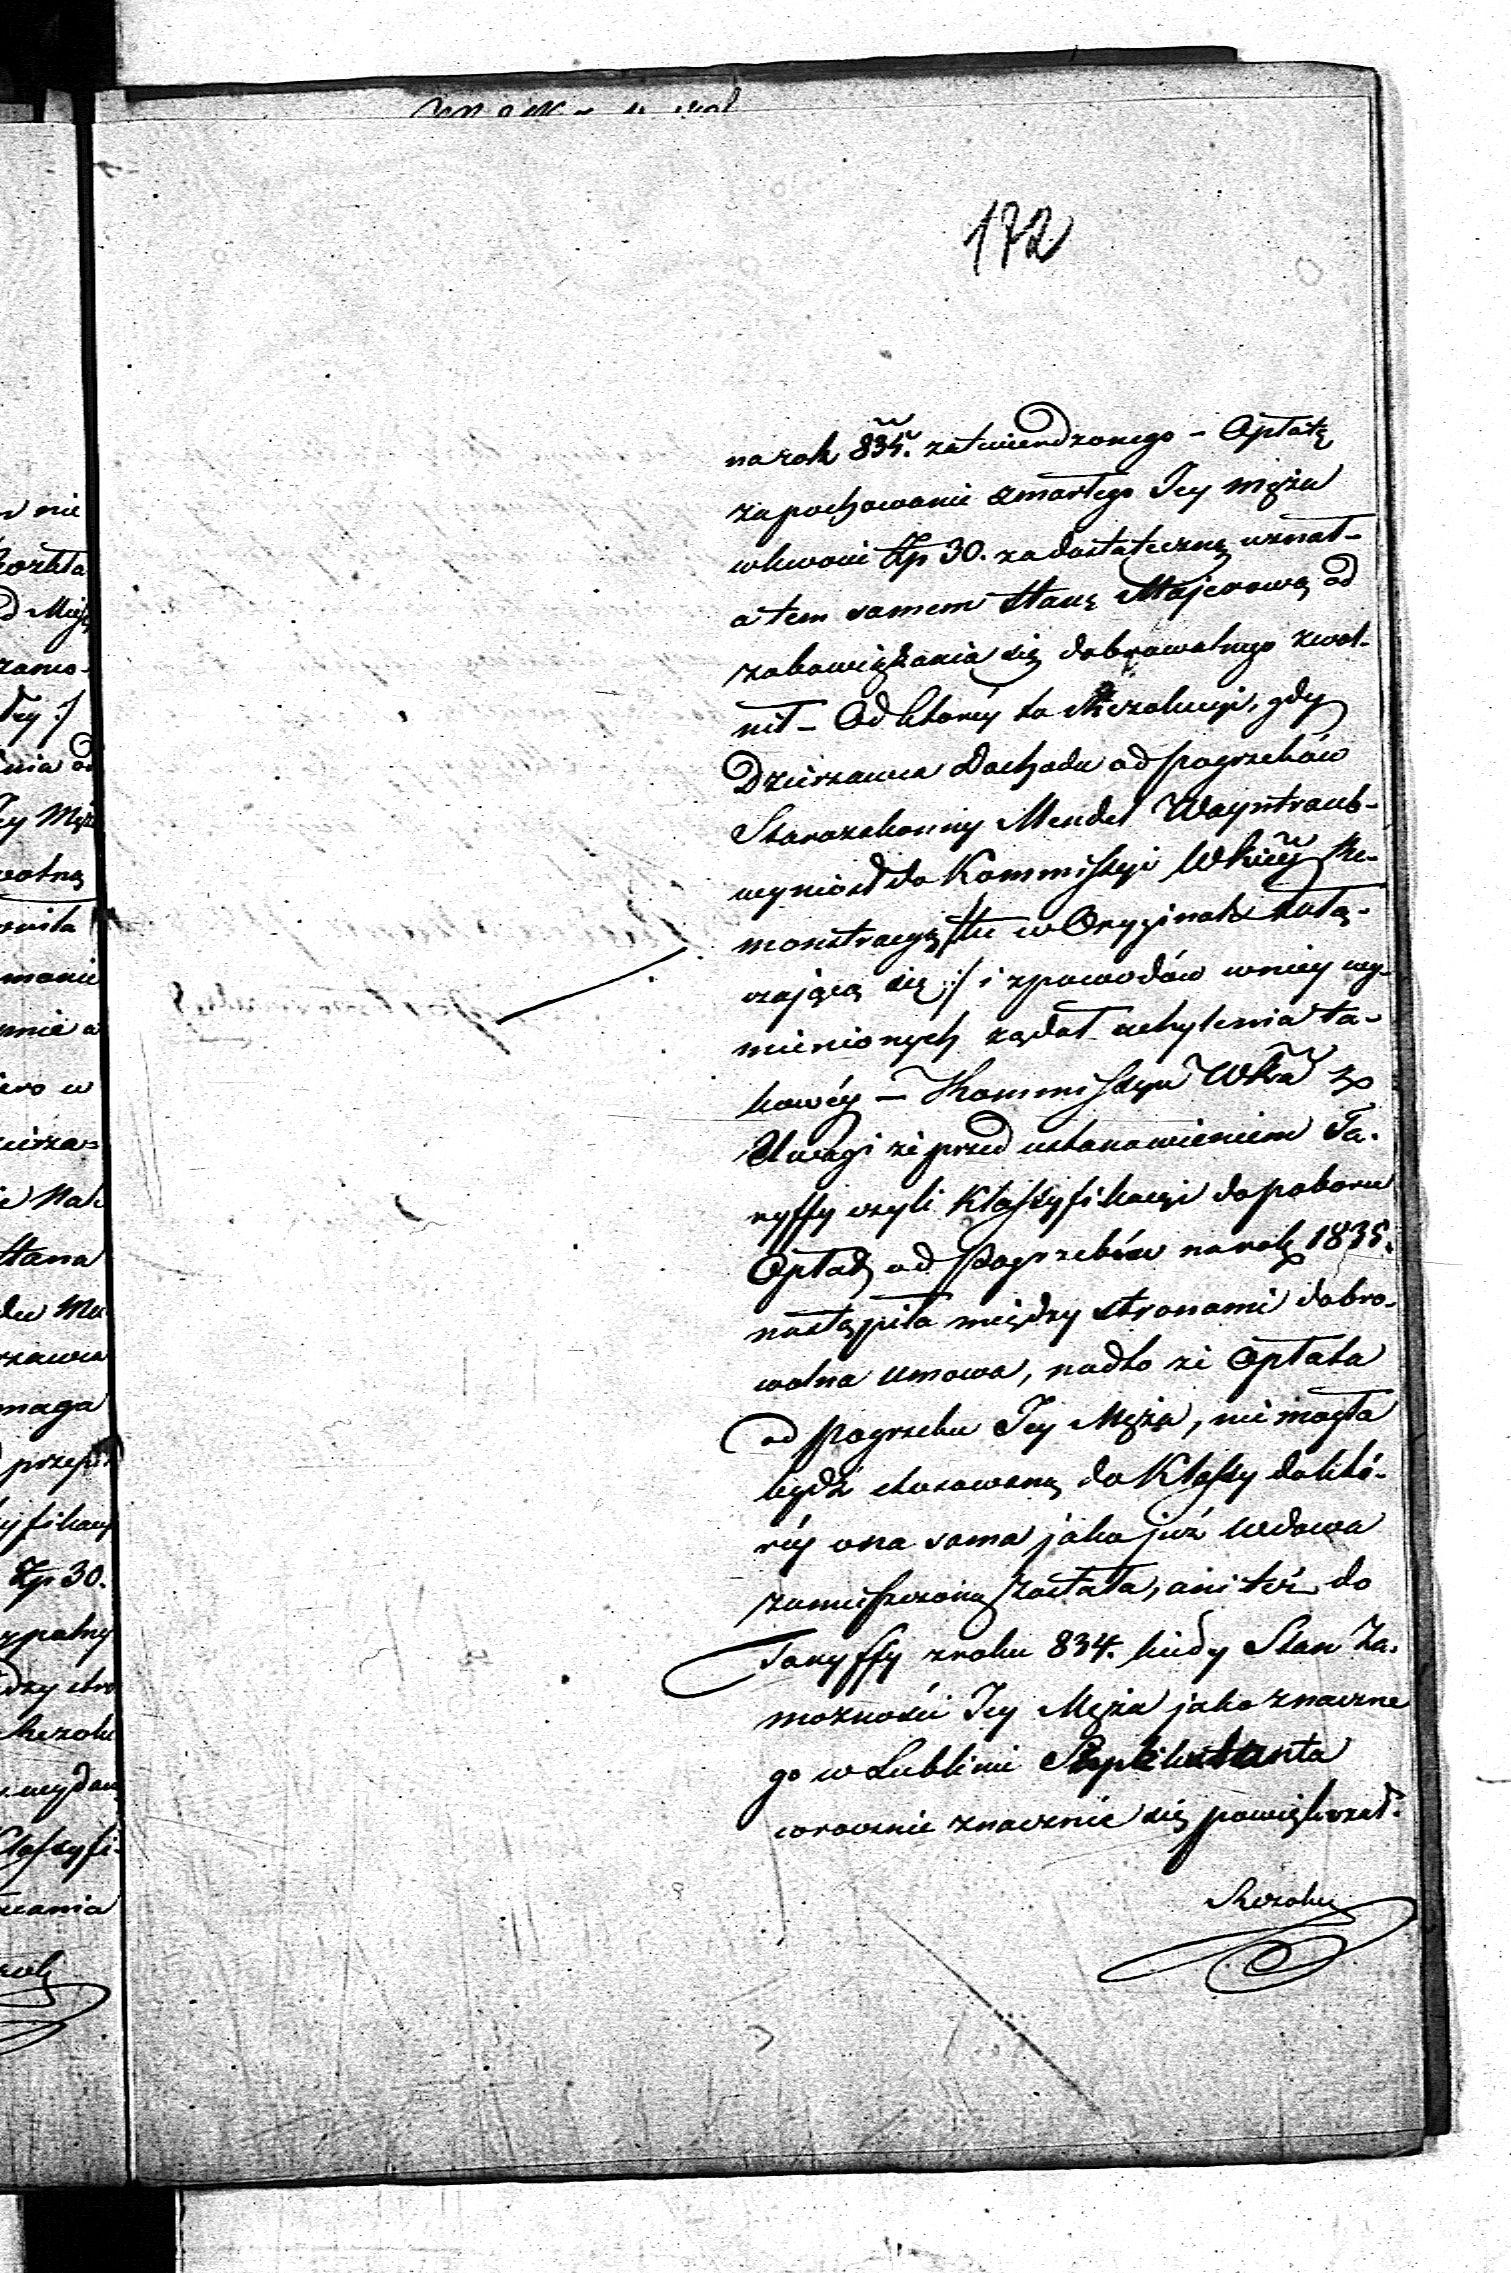 172
na rok 834. zatwierdzonego – Opłatę
za pochowanie zmarłego Jey męża
w kwocie Złp 30. za dostateczną uznał –
a tem samem Hanę Majerową od
zobowiązkania się dobrowolnego zwol-
nił – Od któréy to Rezolucyi, gdy
Dzierzawca Dochodu od pogrzebów
Starozakonny Mendel Wayntraub –
wyniosł do Kommissyi Wkiéy Re-
monstracyą /: tu w Oryginale załą-
czającą się :/ i z powodów w niey wy-
mienionych żądał uchylenia ta-
kowéy – Kommissya Wka z
Uwagi że przed ustanowieniem Ta-
ryffy czyli Klassyfikacyi do poboru
Opłat od Pogrzebów na rok 1835.
nastąpiła między stronami dobro-
wolna umowa, nadto że Opłata
od pogrzebu Jey Męża, nie mogła
bydź stosowaną do Klassy do któ-
réy ona sama jako już wdowa
zamieszczoną została, ani też do
Taryffy z roku 834. kiedy Stan Za-
możności Jey Męża jako znaczne
go w Lublinie
corocznie znacznie się powiększał.
Rezolu
w nie
Zp 30.
maga
Hana